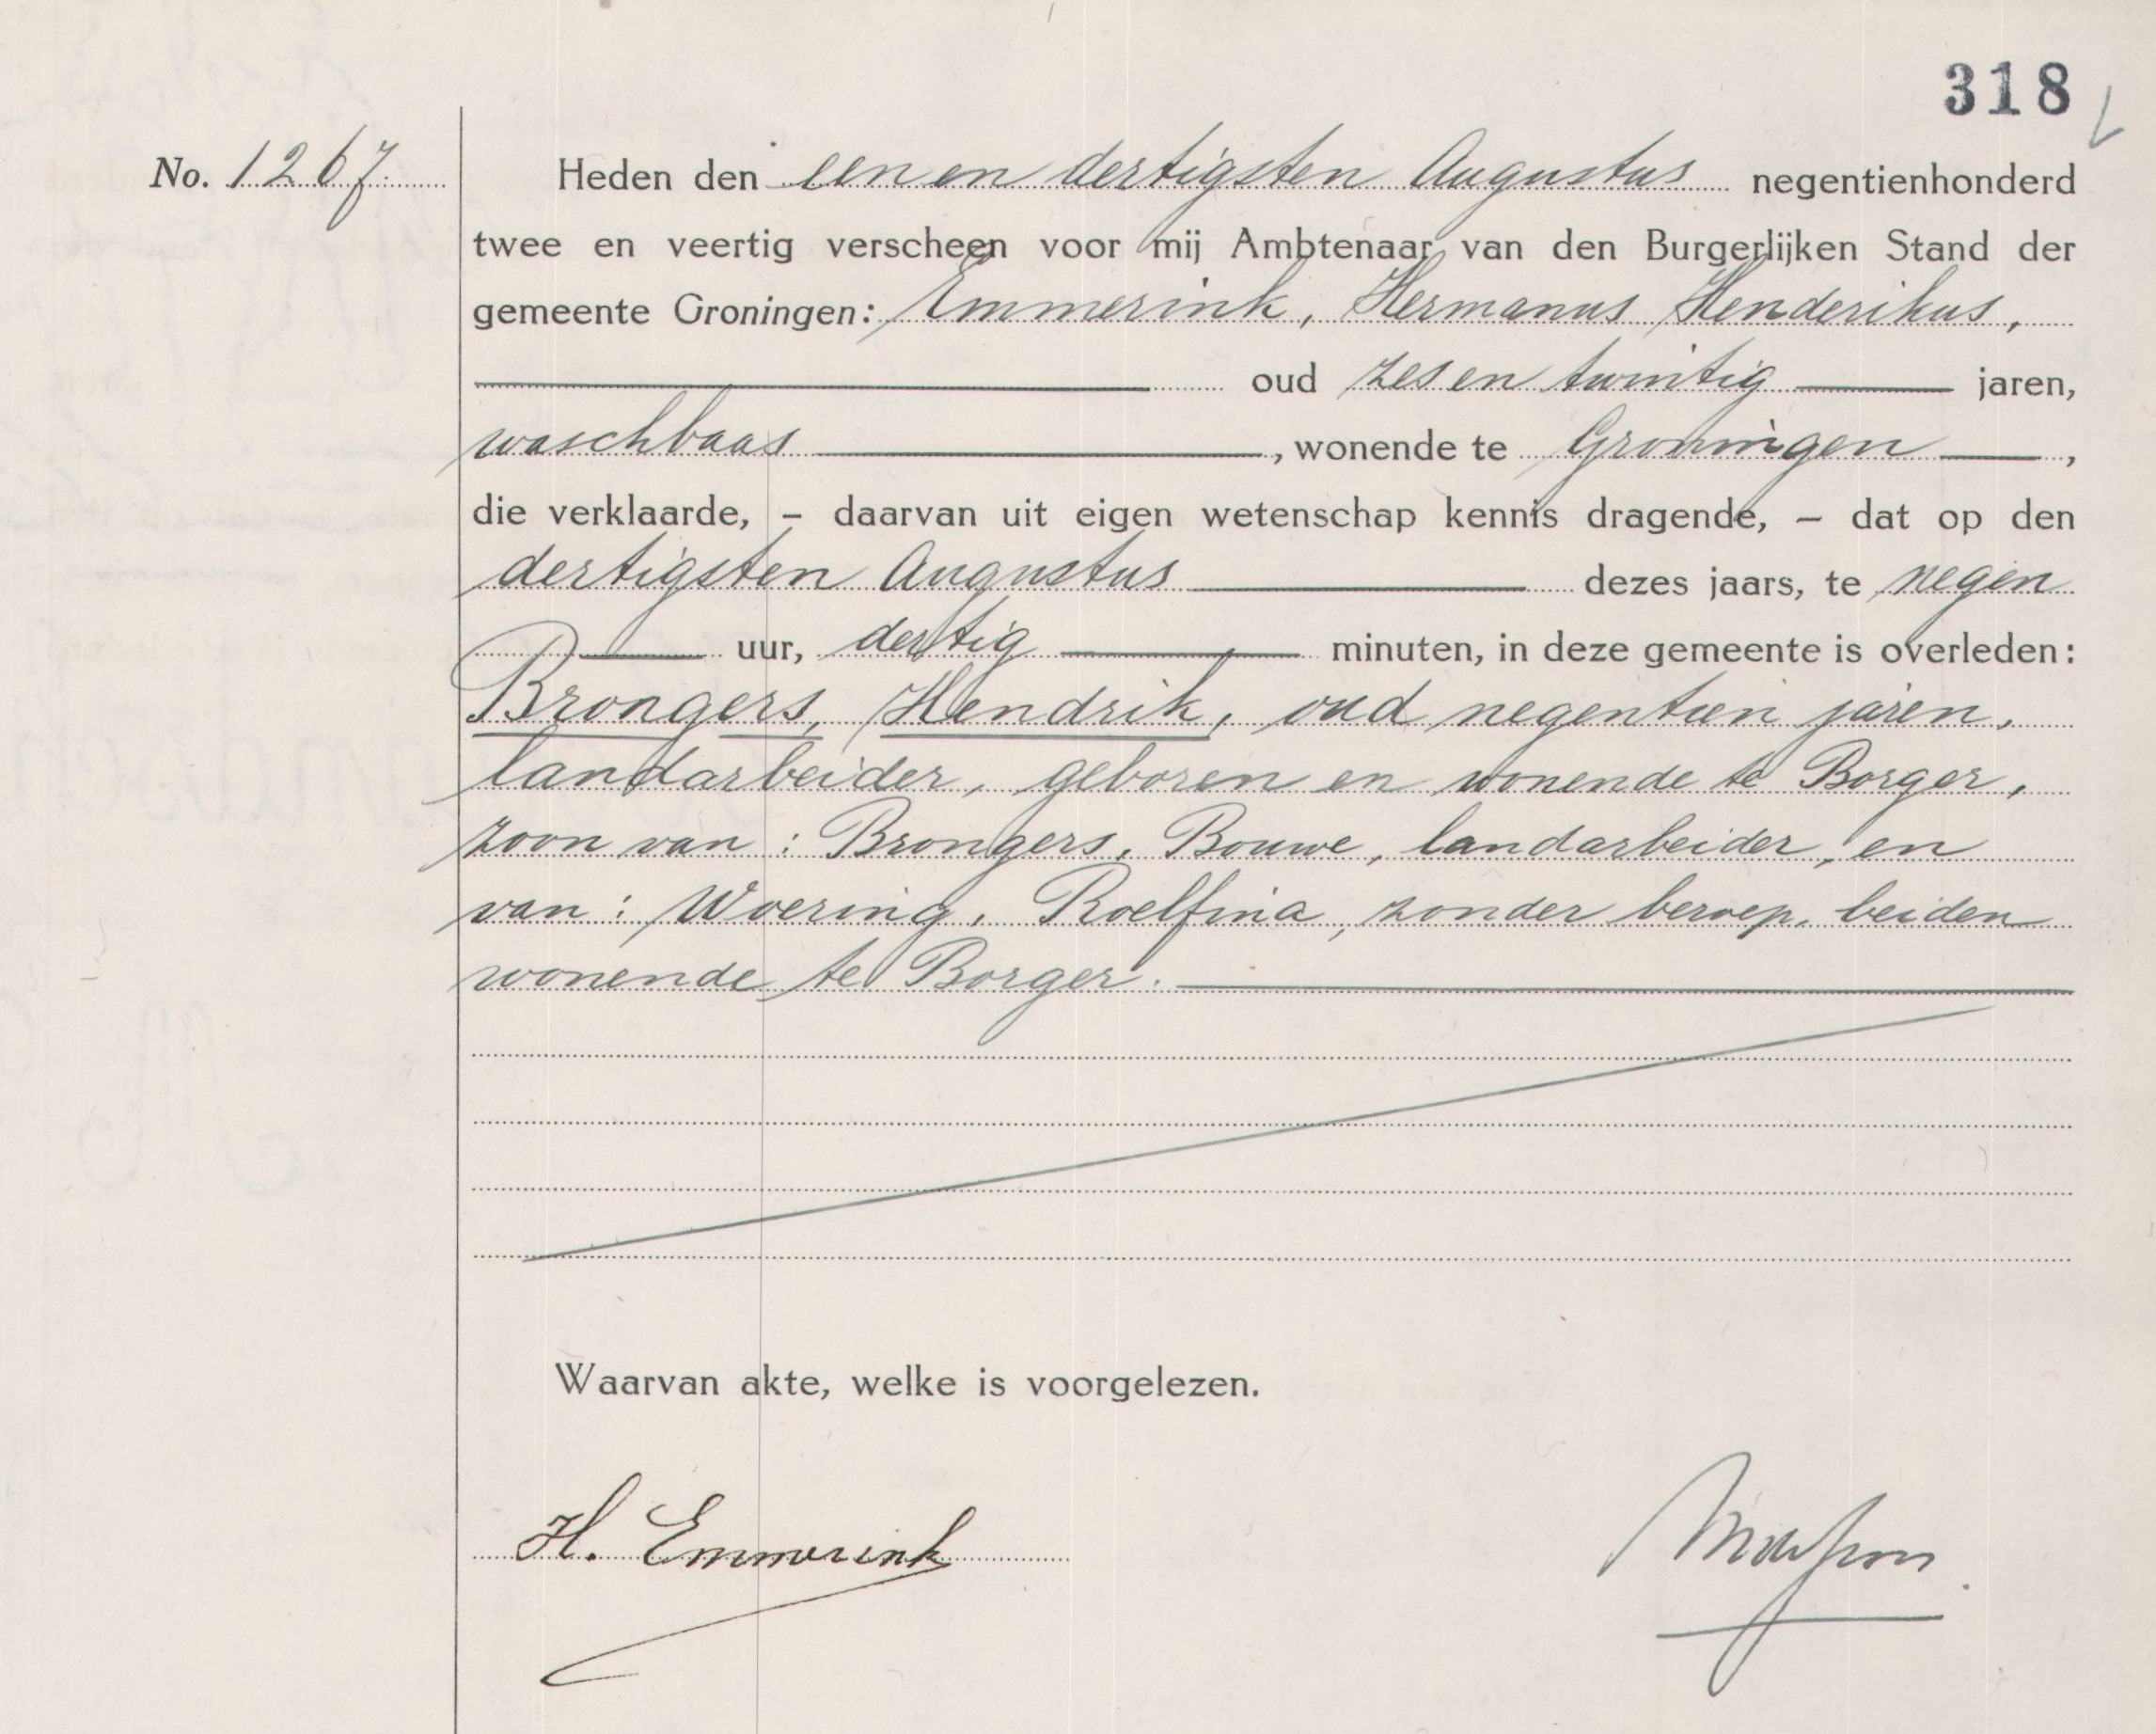 318
No. 1267
Heden den eenen dertigsten Augustus negentienhonderd
twee en veertig verscheen voor mij Ambtenaar van den Burgerlijken Stand der
gemeente Groningen: Emmerink, Hermanus Henderikus,
oud zesen twintig jaren,
waschbaas, wonende te Groningen,
die verklaarde, – daarvan uit eigen wetenschap kennis dragende, – dat op den
dertigsten Augustus dezes jaars, te negen
uur, dertig minuten, in deze gemeente is overleden:
Brongers, Hendrik, oud negentien jaren,
landarbeider, geboren en wonende te Borger,
zoon van: Brongers, Bouwe, landarbeider, en
van: Woering, Roelfina, zonder beroep, beiden
wonende te Borger.
Waarvan akte, welke is voorgelezen.
H. Emmerink